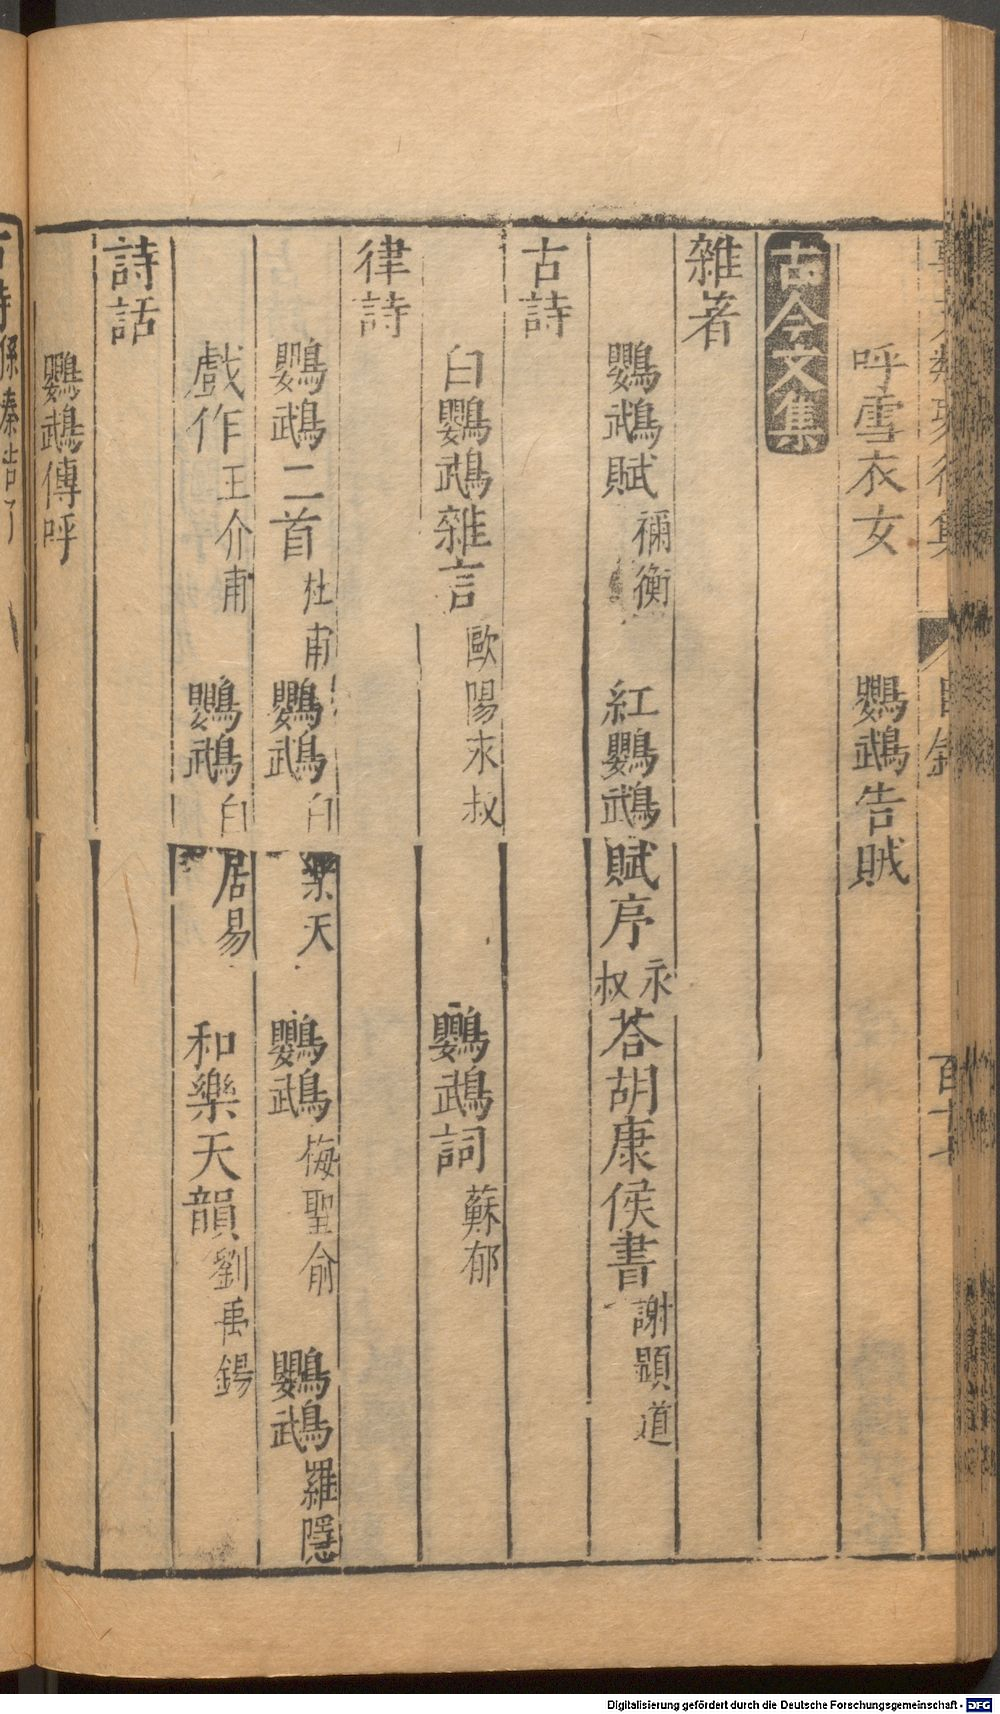 呼雪衣女　鸚鵡告賊
古今文集
雜著
鸚鵡賦　禰衡　紅鸚鵡賦序　永叔　荅胡康侯書　謝顯道
古詩
白鸚鵡雜言　歐陽永叔　鸚鵡詞　蘇郁
律詩
鸚鵡二首　杜甫　鸚鵡　白樂天　鸚鵡　梅聖俞　鸚鵡　羅隱
戲作　王介甫　鸚鵡　白居易　和樂天韻　劉禹錫
詩話
鸚鵡傳呼
Digitalisierung gefördert durch die Deutsche Forschungsgemeinschaft - DFG